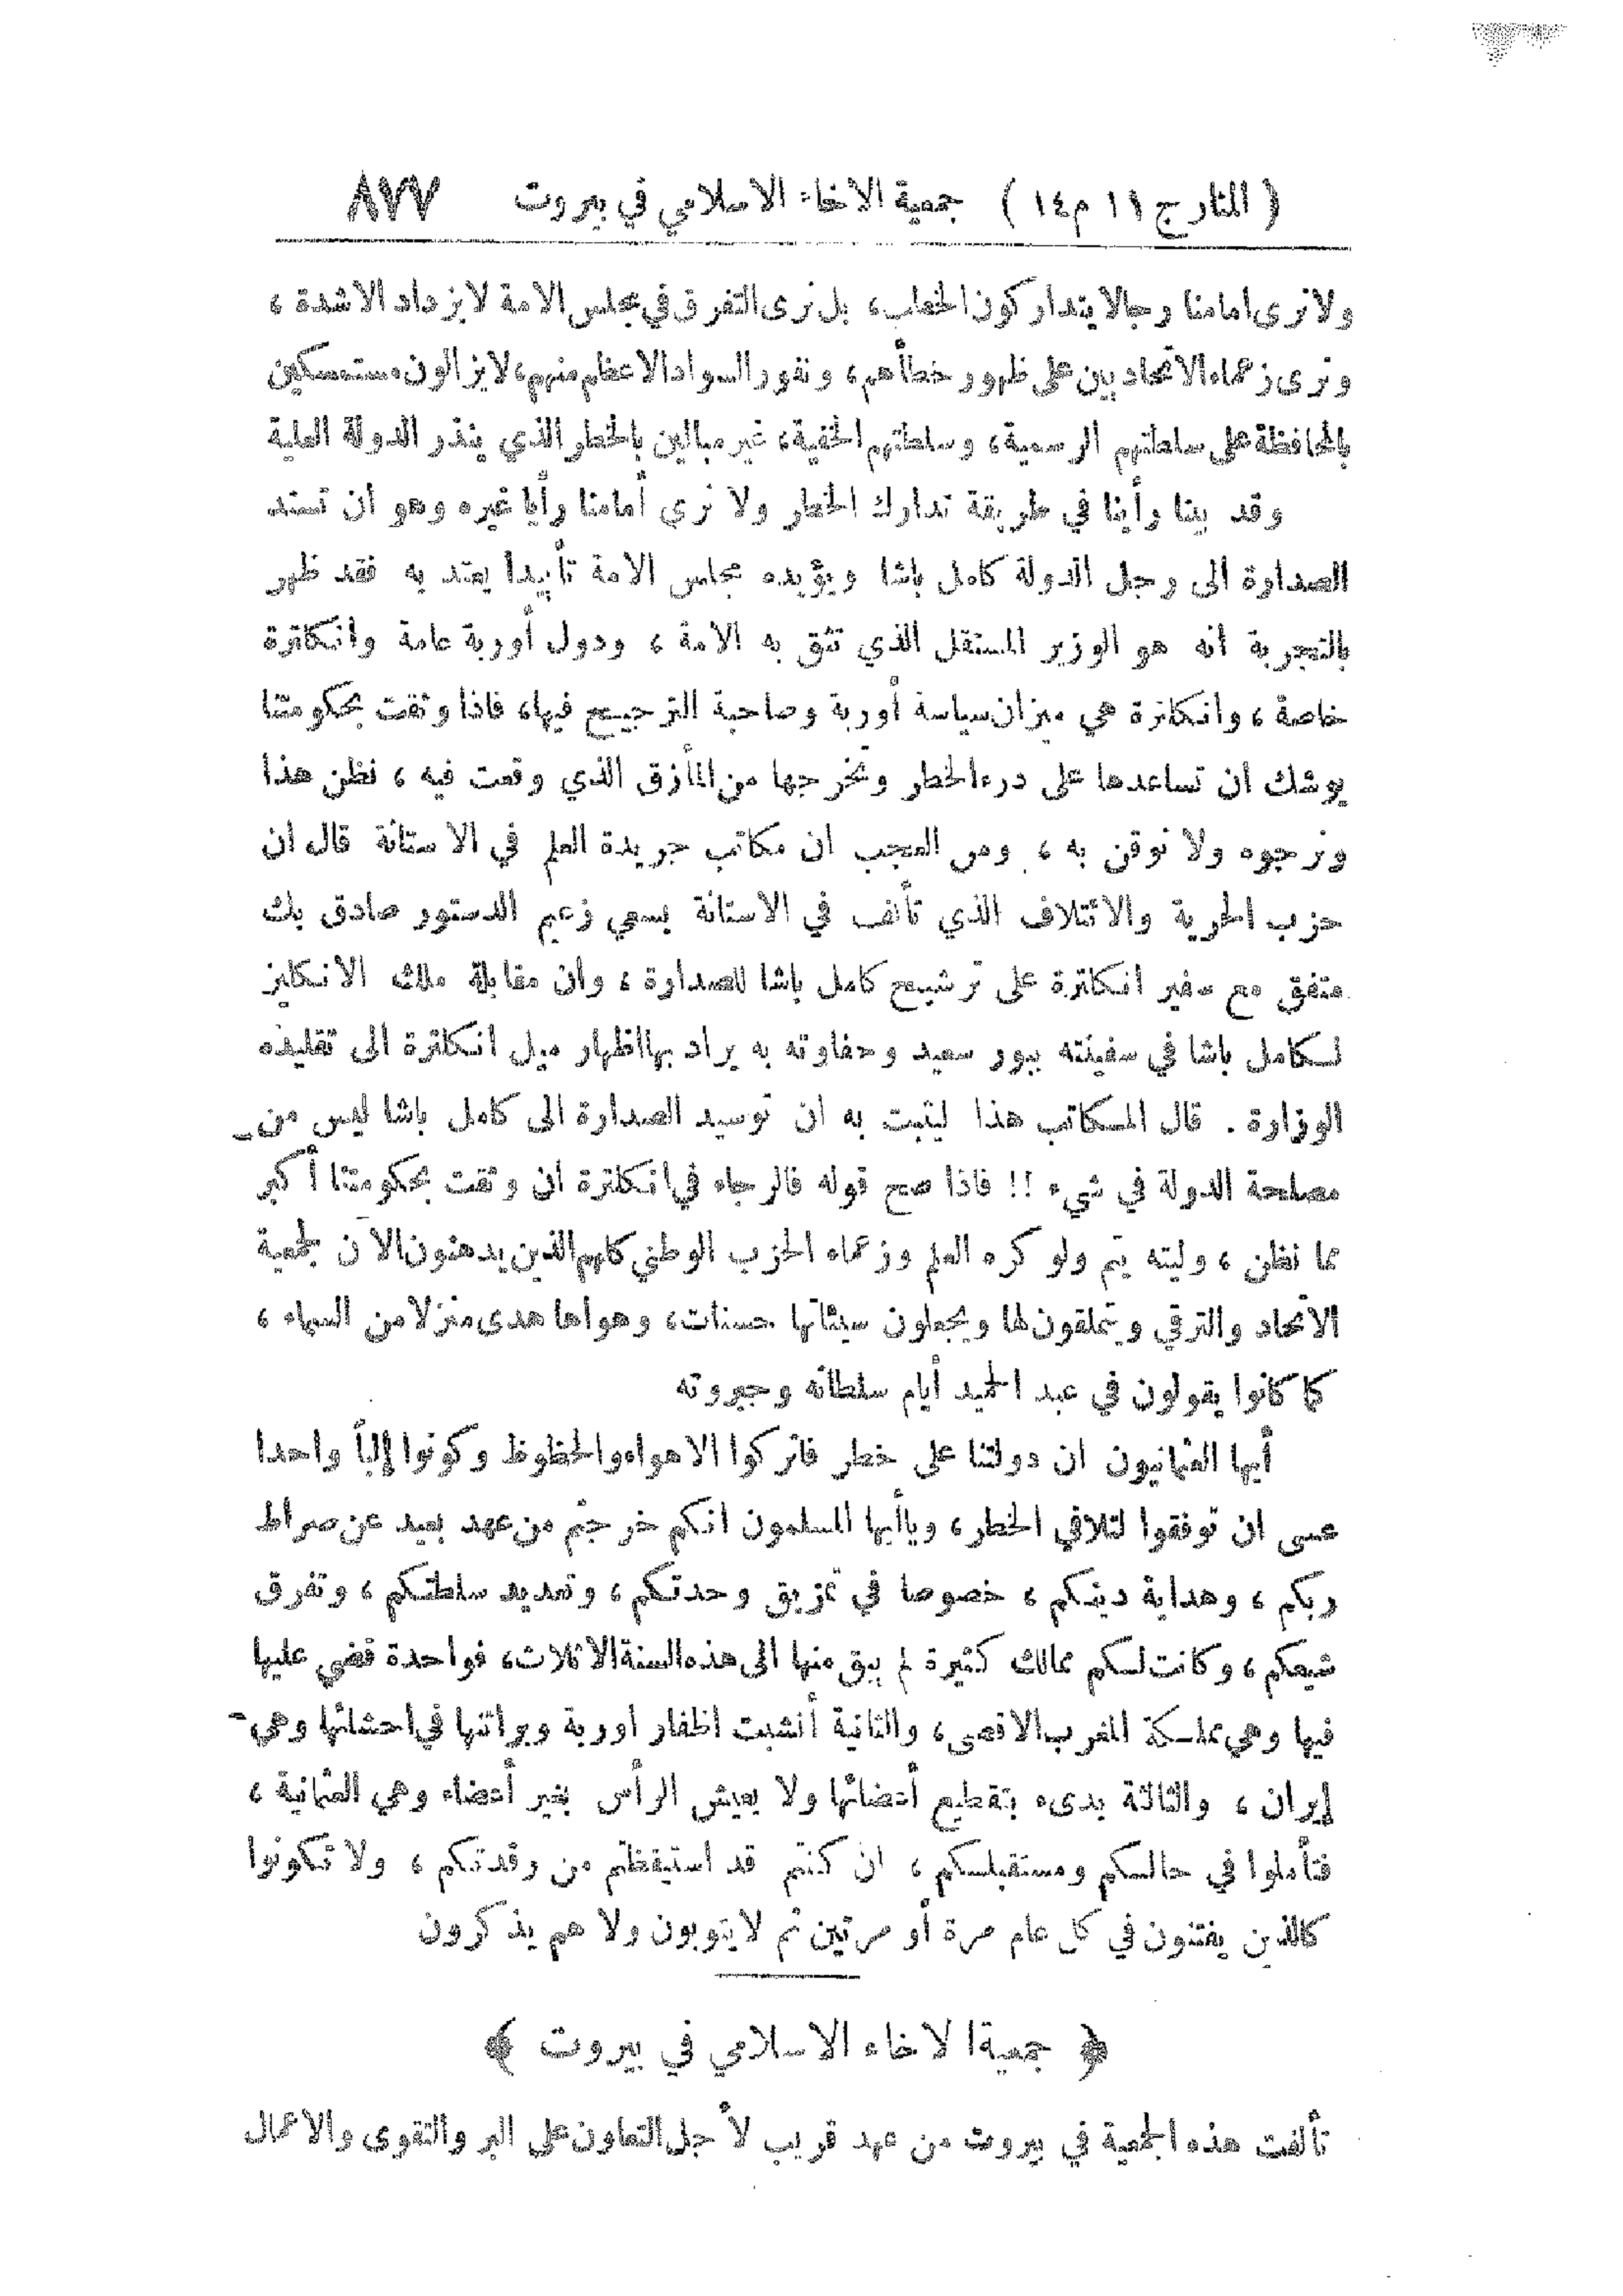 ( المنار ج ١١ م ١٤ ) جمعية الاخاء الاسلامي في بيروت ٨٧٧
ولا نرى امامنا رجالا يتداركون الخطب، بل نرى التفرق في مجلس الامة لا يزداد الا شدة ،
ونرى زعماء الاتحاديين على ظهور خطأهم، ونفور السواد الاعظم منهم، لا يزالون مستمسكين
بالمحافظة على سلطتهم الرسمية، وسلطتهم الخفية، غير مبالين بالخطر الذي ينذر الدولة العلية
وقد بينا رأينا في طريقة تدارك الخطر ولا نرى أمامنا رأيا غيره وهو ان تسند
الصدارة الى رجل الدولة كامل باشا ويؤيده مجلس الامة تأييدا يعتد به فقد ظهر
بالتجربة انه هو الوزير المستقل الذي تثق به الامة ، ودول أوربة عامة وانكلترة
خاصة ، وانكلترة هي ميزان سياسة أوربة وصاحبة الترجيح فيها، فاذا وثقت بحكومتنا
يوشك ان تساعدها على درء الخطر وتخرجها من المأزق الذي وقعت فيه ، نظن هذا
ونرجوه ولا نوقن به ، ومن العجب ان مكاتب جريدة العلم في الاستانة قال ان
حزب الحرية والائتلاف الذي تألف في الاستانة بسعي زعيم الدستور صادق بك
متفق مع سفير انكلترة على ترشيح كامل باشا للصدارة ، وان مقابلة ملك الانكليز
لكامل باشا في سفينته ببور سعيد وحفاوته به يراد بها اظهار ميل انكلترة الى تقليده
الوزارة . قال المكاتب هذا ليثبت به ان توسيد الصدارة الى كامل باشا ليس من
مصلحة الدولة في شيء !! فاذا صح قوله فالرجاء في انكلترة ان وثقت بحكومتنا أكبر
مما نظن ، وليته يتم ولو كره العلم وزعماء الحزب الوطني كلهم الذين يدهنون الآن لجمعية
الاتحاد والترقي ويتملقون لها ويجعلون سيئاتها حسنات، وهواها هدى منزلا من السماء ،
كما كانوا يقولون في عبد الحميد أيام سلطانه وجبروته
أيها العثمانيون ان دولتنا على خطر فاتركوا الاهواء والحظوظ وكونوا إلباً واحدا
عسى ان توفقوا لتلافي الخطر، وياأيها المسلمون انكم خرجتم من عهد بعيد عن صراط
ربكم ، وهداية دينكم ، خصوصا في تمزيق وحدتكم ، وتعديد سلطتكم ، وتفرق
شيعكم ، وكانت لكم ممالك كثيرة لم يبق منها الى هذه السنة الا ثلاث، فواحدة قضي عليها
فيها وهي مملكة المغرب الاقصى، والثانية أنشبت اظفار اوربة وبراثنها في احشائها وهي
إيران ، والثالثة بدىء بتقطيع أعضائها ولا يعيش الرأس بغير أعضاء وهي العثمانية ،
فتأملوا في حالكم ومستقبلكم ، ان كنتم قد استيقظتم من رقدتكم ، ولا تكونوا
كالذين يفتنون في كل عام مرة أو مرتين ثم لا يتوبون ولا هم يذكرون
﴿ جمعية الاخاء الاسلامي في بيروت ﴾
تألفت هذه الجمعية في بيروت من عهد قريب لأجل التعاون على البر والتقوى والاعمال